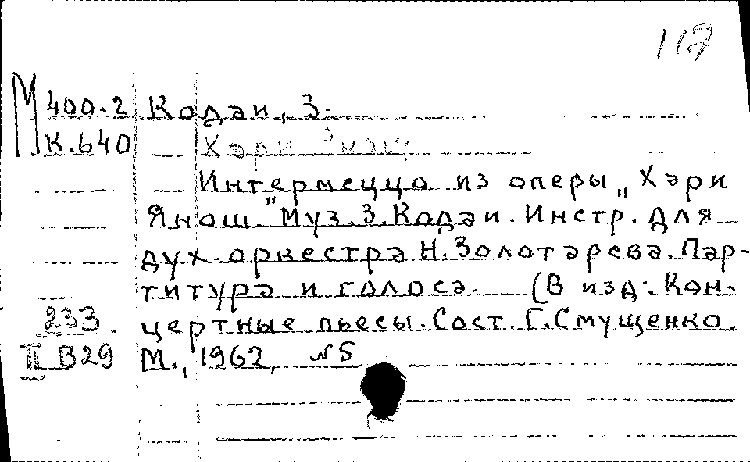 М 400.2 Кодэи, З.
К.640 Хэри Янош.
Интермеццо из оперы „Хэри
Янош." Муз. З. Кодэи. Инстр. для
дух оркестра Н. Золотарева. Пар-
титура и голоса. (В изд: Кон-
233 цертные пьесы. Сост. Г. Смущенко.
II В29 М., 1962, №5